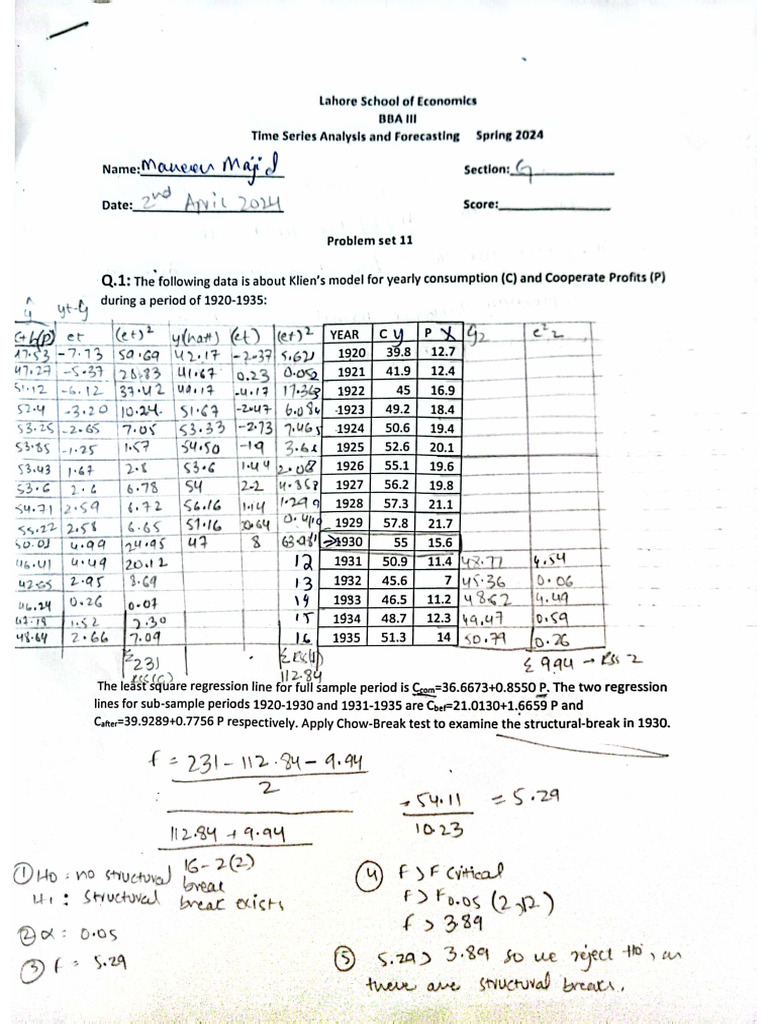 Lahore School of Economics
BBA III
Time Series Analysis and Forecasting Spring 2024
Name: Majid Section: G
Date: 2nd April 2024 Score:
Problem set 11
Q.1: The following data is about Klien's model for yearly consumption (C) and Cooperate Profits (P)
during a period of 1920-1935:
ŷ yt-ŷ
C+b(p) et (et)² y(hatt) (et) (et)² YEAR C y P X ŷ2 e²2
47.53 -7.73 59.69 42.17 -2.37 5.621 1920 39.8 12.7
47.27 -5.37 28.83 41.67 0.23 0.052 1921 41.9 12.4
51.12 -6.12 37.42 49.17 -4.17 17.363 1922 45 16.9
52.4 -3.20 10.24 51.67 -2.47 6.084 1923 49.2 18.4
53.25 -2.65 7.05 53.33 -2.73 7.465 1924 50.6 19.4
53.85 -1.25 1.57 54.50 -19 3.61 1925 52.6 20.1
53.43 1.67 2.8 53.6 1.44 2.08 1926 55.1 19.6
53.6 2.6 6.78 54 2.2 4.858 1927 56.2 19.8
54.71 2.59 6.72 56.16 1.14 1.299 1928 57.3 21.1
55.22 2.58 6.65 57.16 0.64 1929 57.8 21.7
50.01 4.99 24.95 47 8 1930 55 15.6
46.41 4.49 20.12 12 1931 50.9 11.4 48.77 4.54
42.65 2.95 8.69 13 1932 45.6 7 45.36 0.06
46.24 0.26 0.07 14 1933 46.5 11.2 48.62 4.49
1.52 2.30 15 1934 48.7 12.3 49.47 0.59
48.64 2.66 7.09 16 1935 51.3 14 50.79 0.26
Σ 231 RSS(C) Σ RSS(1) 112.84 Σ 9.94 → RSS 2
The least square regression line for full sample period is Ccom=36.6673+0.8550 P. The two regression
lines for sub-sample periods 1920-1930 and 1931-1935 are Cbef=21.0130+1.6659 P and
Cafter=39.9289+0.7756 P respectively. Apply Chow-Break test to examine the structural-break in 1930.
f = 231 - 112.84 - 9.94
2
112.84 + 9.94
16-2(2)
→ 54.11 = 5.29
10.23
① H0: no structural break
H1: structural break exists
② α: 0.05
③ f = 5.29
④ f > F critical
f > F0.05 (2,12)
f > 3.89
⑤ 5.29 > 3.89 so we reject H0, as
there are structural breaks.